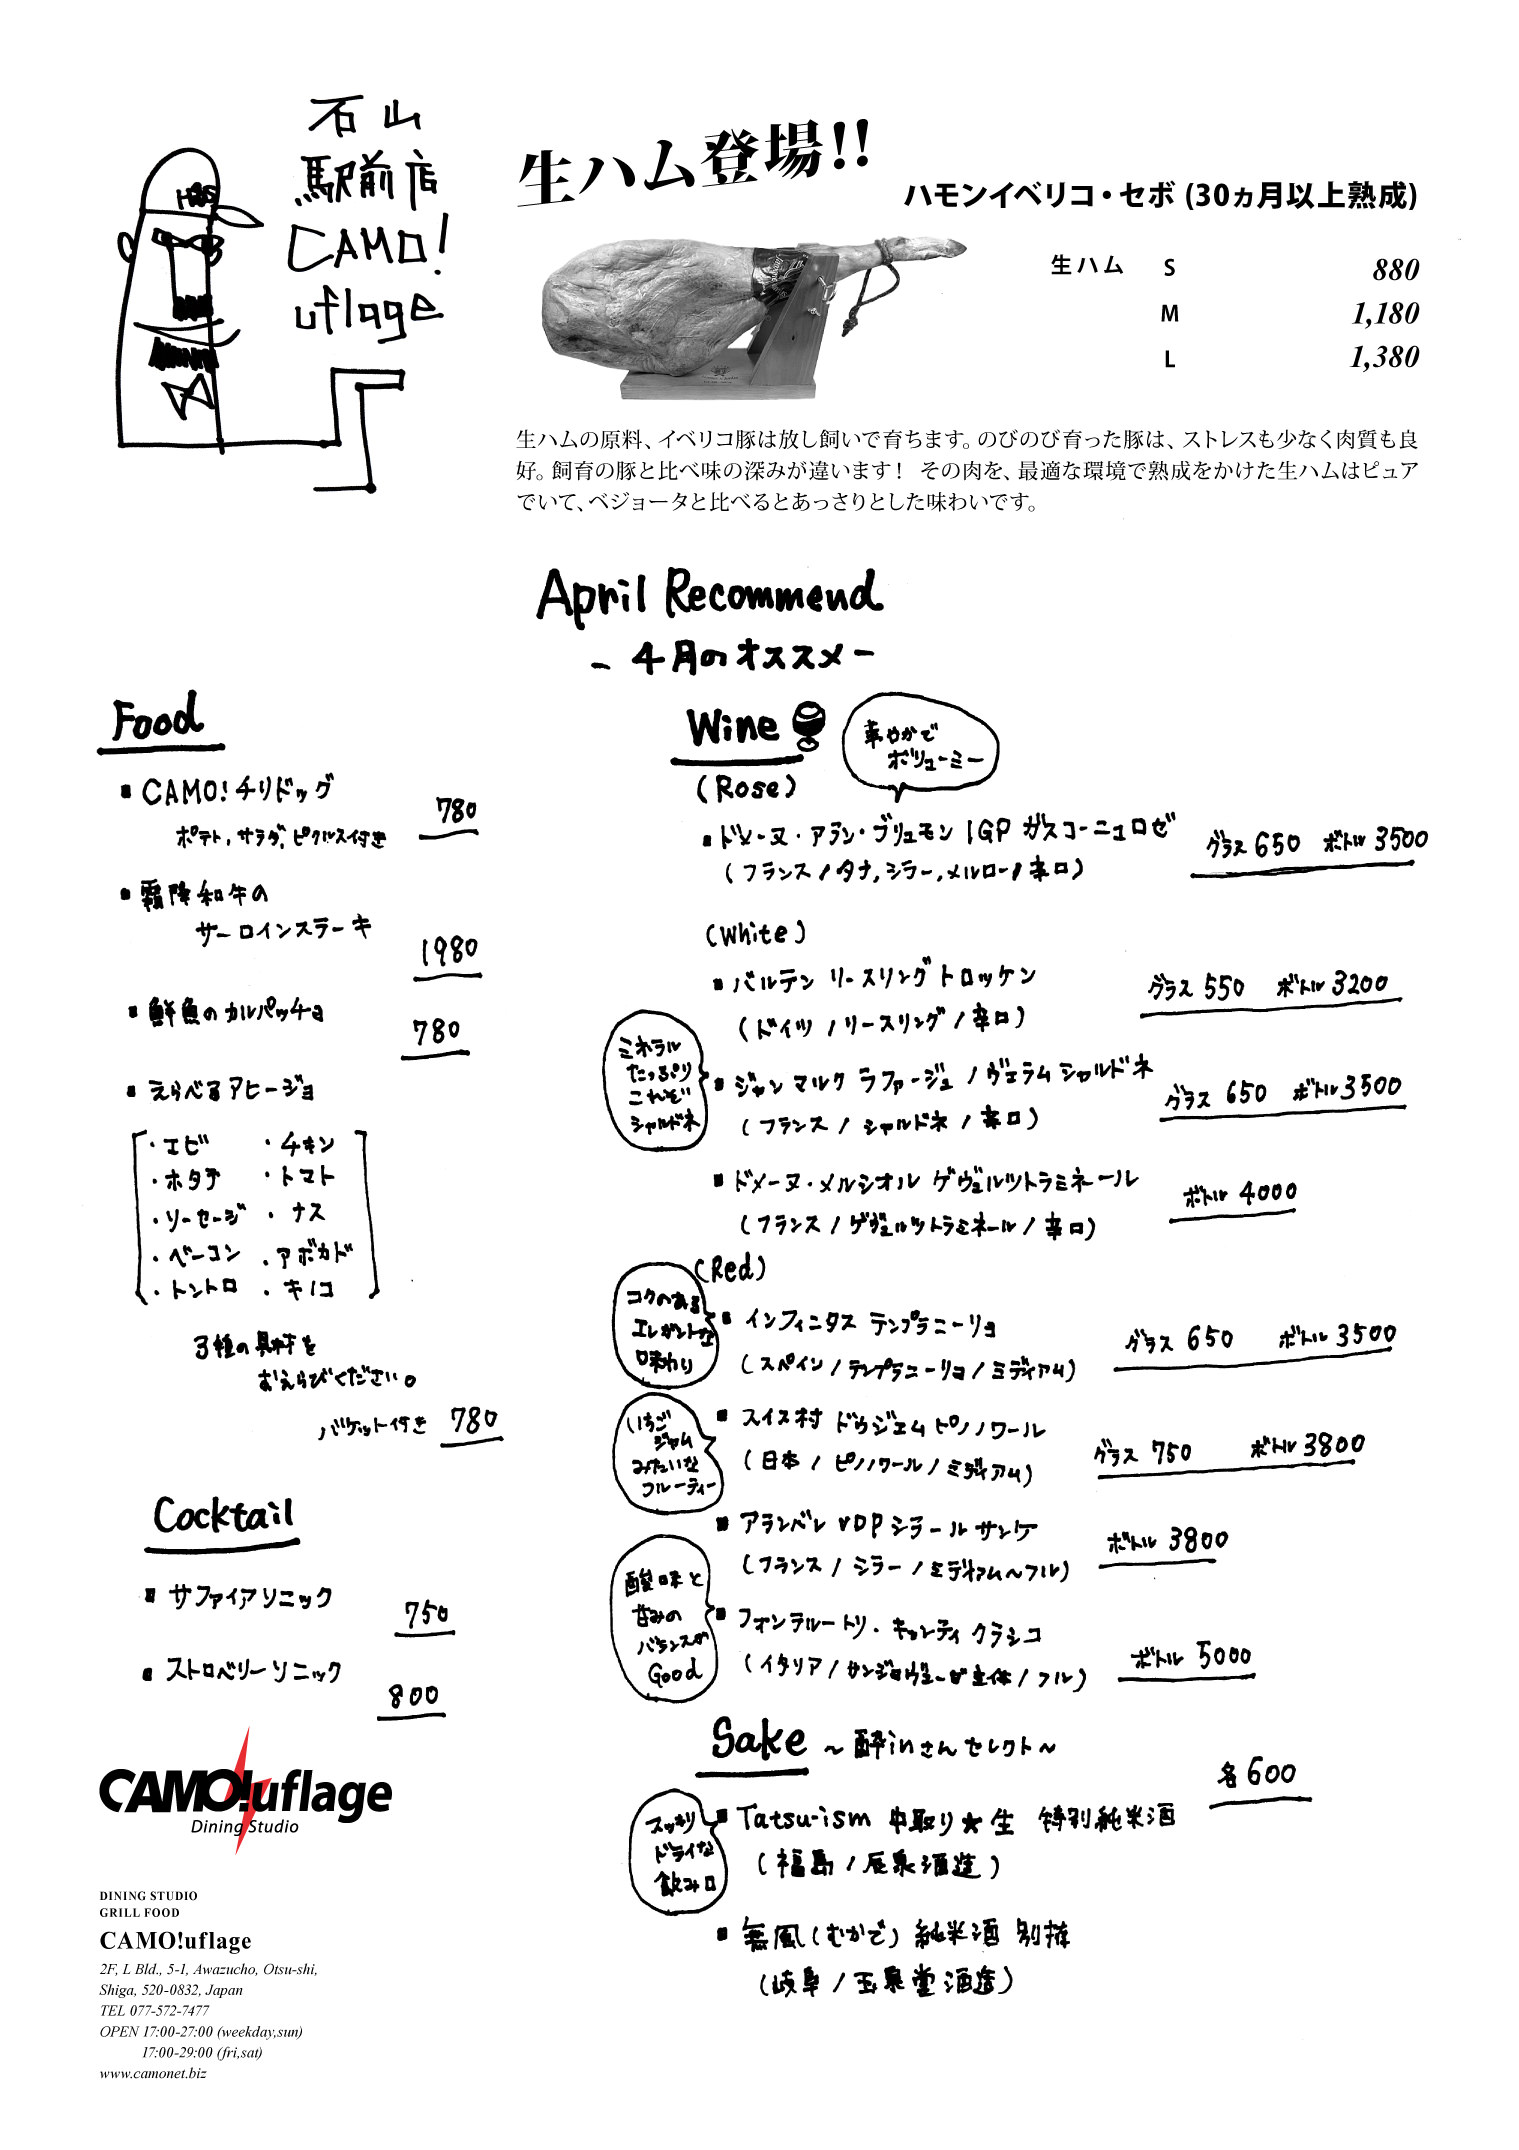 石山
駅前店
CAMO!
uflage
H&S
生ハム登場!!
ハモンイベリコ・セボ (30ヵ月以上熟成)
生ハム S 880
M 1,180
L 1,380
生ハムの原料、イベリコ豚は放し飼いで育ちます。のびのび育った豚は、ストレスも少なく肉質も良
好。飼育の豚と比べ味の深みが違います！ その肉を、最適な環境で熟成をかけた生ハムはピュア
でいて、ベジョータと比べるとあっさりとした味わいです。
April Recommend
- 4月のオススメ -
Food
■ CAMO!チリドッグ 780
ポテト, サラダ, ピクルス付き
■ 霜降和牛の
サーロインステーキ
1980
■ 鮮魚のカルパッチョ
780
■ えらべるアヒージョ
・エビ ・チキン
・ホタテ ・トマト
・ソーセージ ・ナス
・ベーコン ・アボカド
・トントロ ・キノコ
3種の具材を
おえらびください。
バケット付き 780
Cocktail
■ サファイアソニック
750
■ ストロベリーソニック
800
CAMO!uflage
Dining Studio
DINING STUDIO
GRILL FOOD
CAMO!uflage
2F, L Bld., 5-1, Awazucho, Otsu-shi,
Shiga, 520-0832, Japan
TEL 077-572-7477
OPEN 17:00-27:00 (weekday,sun)
17:00-29:00 (fri,sat)
www.camonet.biz
Wine
華やかで
ボリューミー
(Rose)
■ ドメーヌ・アラン・ブリュモン IGP ガスコーニュロゼ グラス 650 ボトル 3500
(フランス / タナ, シラー, メルロー / 辛口)
(White)
■ バルテン リースリングトロッケン グラス 550 ボトル 3200
(ドイツ / リースリング / 辛口)
ミネラル
たっぷり
これぞ
シャルドネ
■ ジャン マルク ラファージュ / ヴェラム シャルドネ グラス 650 ボトル 3500
(フランス / シャルドネ / 辛口)
■ ドメーヌ・メルシオル ゲヴェルツトラミネール ボトル 4000
(フランス / ゲヴェルツトラミネール / 辛口)
(Red)
コクのある
エレガントな
味わい
■ インフィニタス テンプラニーリョ グラス 650 ボトル 3500
(スペイン / テンプラニーリョ / ミディアム)
いちご
ジャム
みたいな
フルーティー
■ スイス村 ドゥジェム ピノノワール グラス 750 ボトル 3800
(日本 / ピノノワール / ミディアム)
■ アランベレ VDP シラール サンケ ボトル 3800
(フランス / シラー / ミディアム〜フル)
酸味と
甘みの
バランスが
Good
■ フォンテルートリ・キャンティ クラシコ ボトル 5000
(イタリア / サンジョヴェーゼ主体 / フル)
Sake 〜酔inさんセレクト〜 各600
スッキリ
ドライな
飲み口
■ Tatsu-ism 中取り★生 特別純米酒
(福島 / 辰泉酒造)
■ 無風(むかで) 純米酒 別撰
(岐阜 / 玉泉堂酒造)